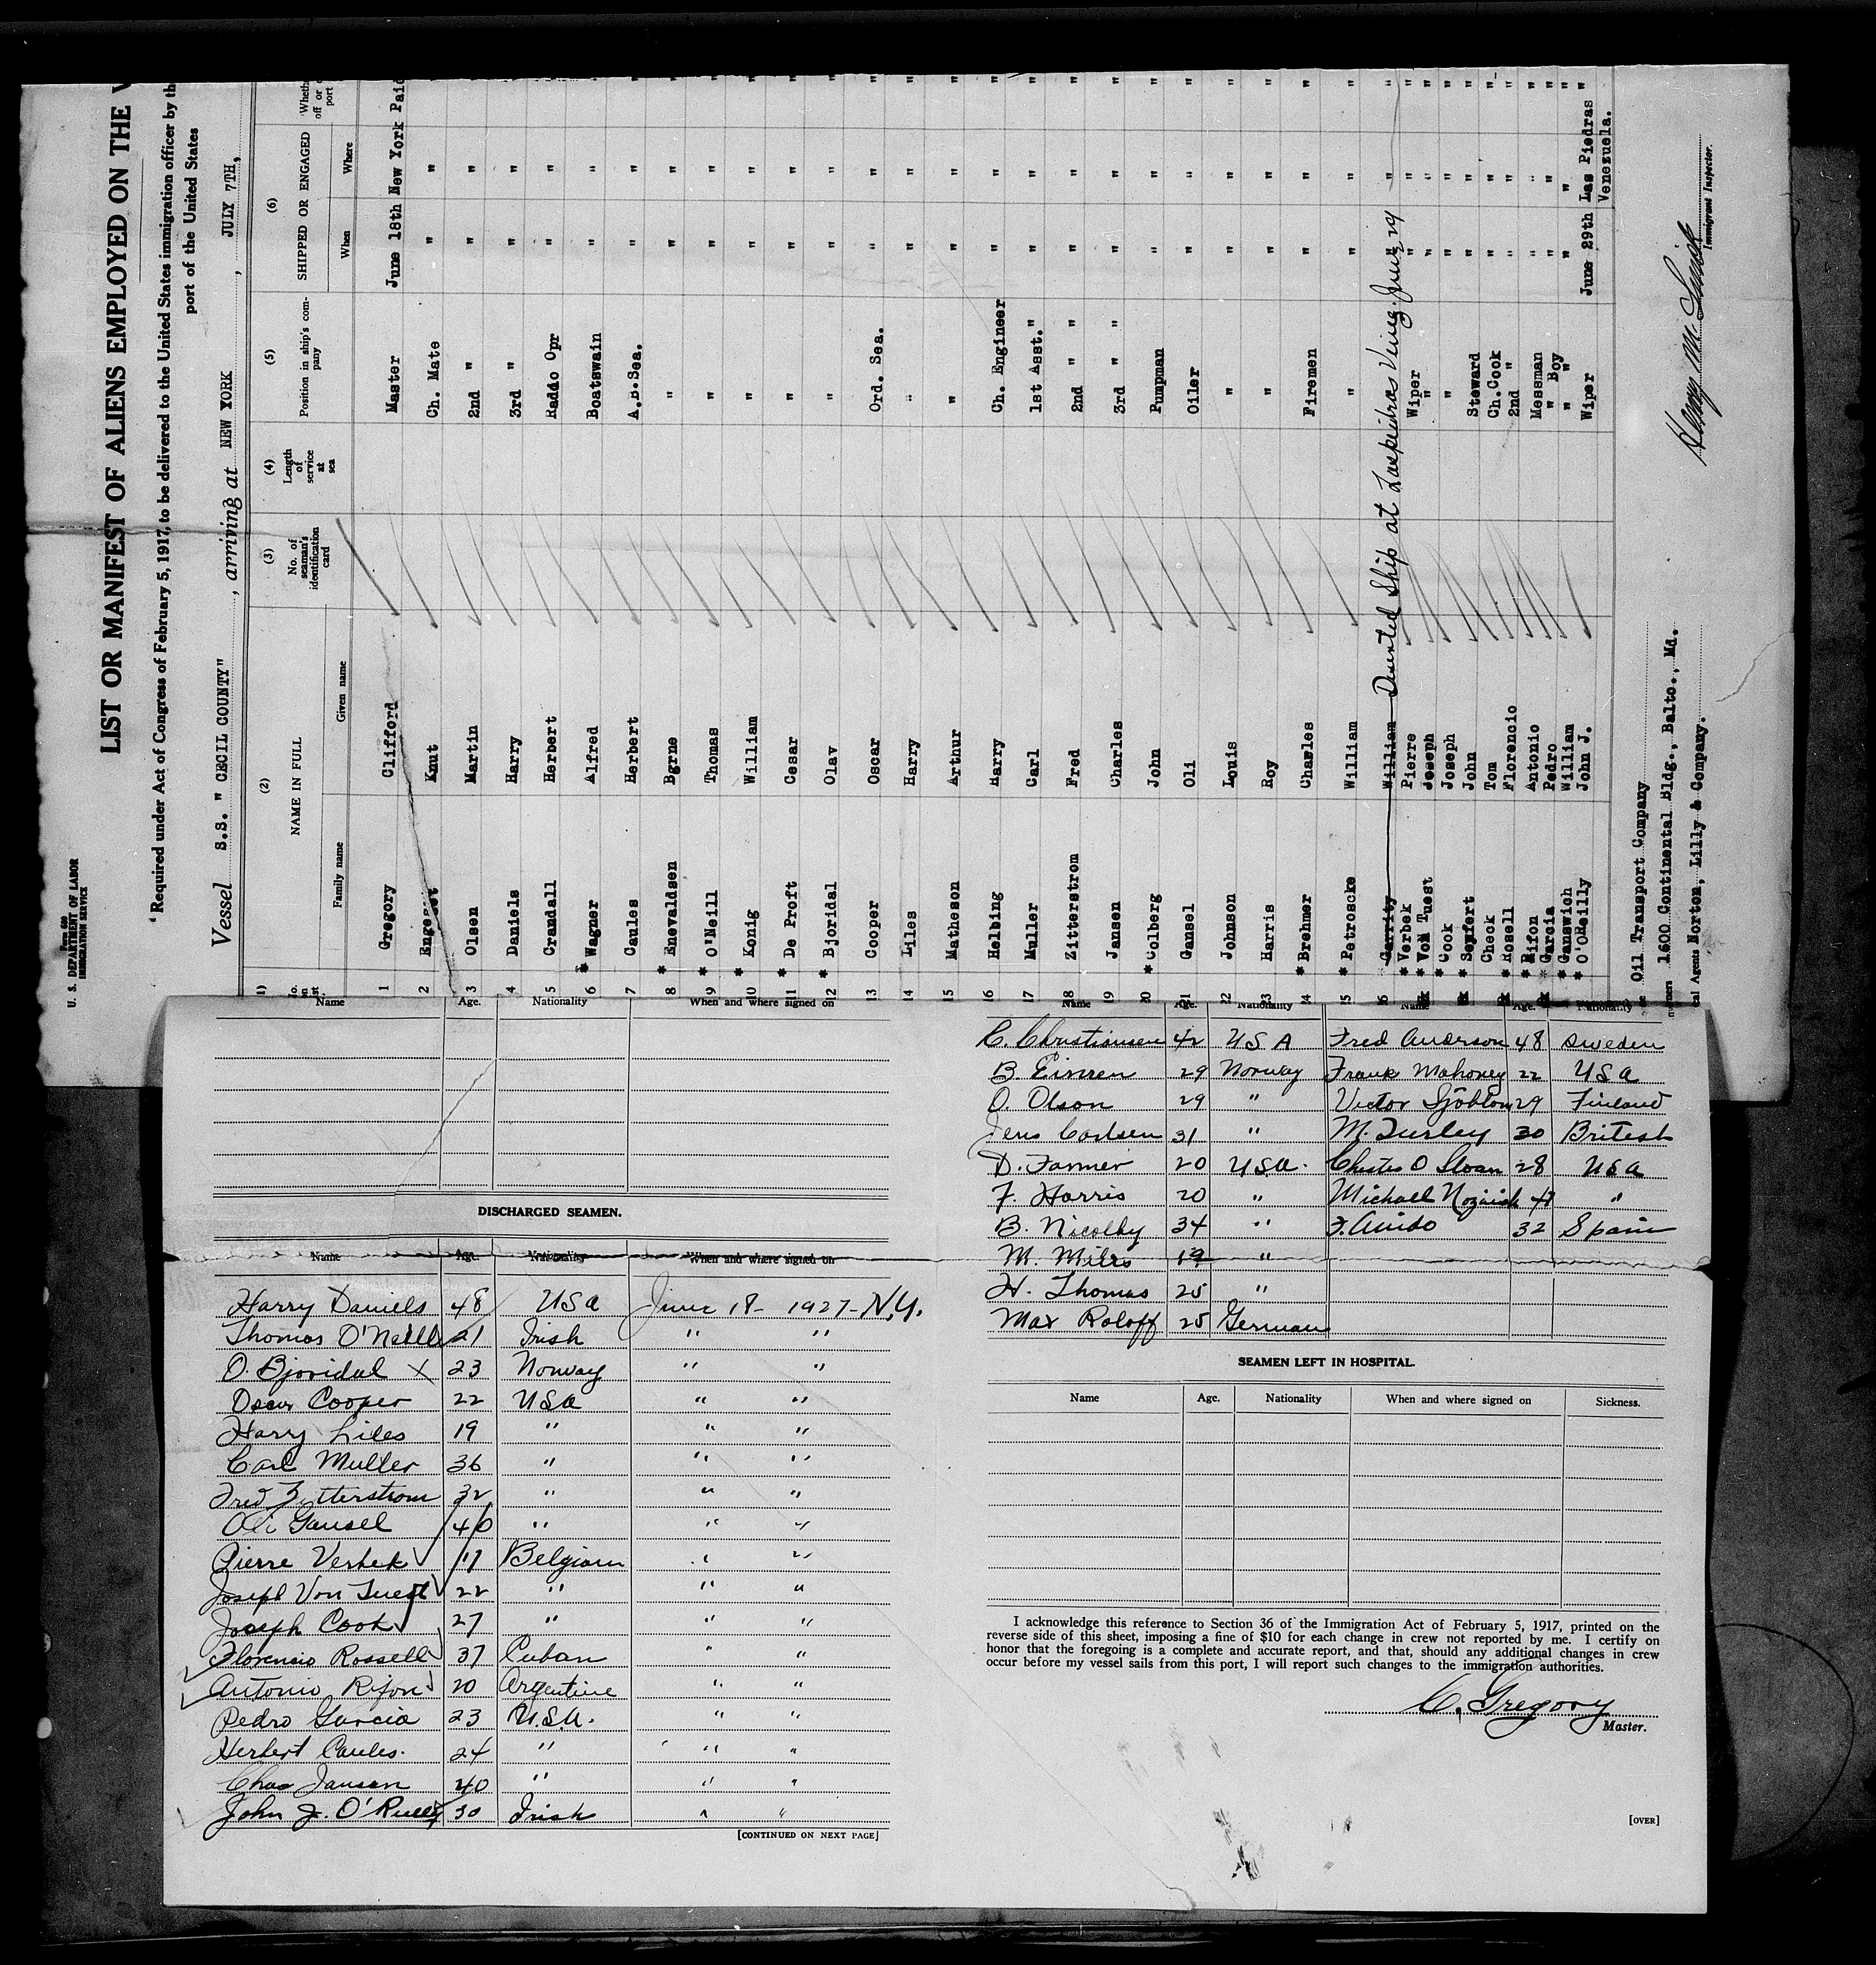 U. S. DEPARTMENT OF LABOR
IMMIGRATION SERVICE
LIST OR MANIFEST OF ALIENS EMPLOYED ON THE
Required under Act of Congress of February 5, 1917, to be delivered to the United States immigration officer by th
port of the United States
Vessel S.S. " CECIL COUNTY" , arriving at NEW YORK , JULY 7TH,
(2) (3) (4) (5) (6)
NAME IN FULL No. of seaman's identification card Length of service at sea Position in ship's company SHIPPED OR ENGAGED
Family name Given name When Where
1 Gregory Clifford Master June 18th New York Paid
2 Knut Ch. Mate " " "
3 Olsen Martin 2nd " " " "
4 Daniels Harry 3rd " " " "
5 Crandall Herbert Raddo Opr " " "
* 6 Wagner Alfred Boatswain " " "
7 Caules Herbert A.B.Sea. " " "
* 8 Enevaldsen Bgrne " " " "
* 9 O'Neill Thomas " " " "
* 10 Konig William " " " "
* 11 De Proft Cesar " " " "
* 12 Bjoridal Olav " " " "
13 Cooper Oscar Ord. Sea. " " "
14 Liles Harry " " " "
15 Matheson Arthur " " " "
16 Helbing Harry Ch. Engineer " " "
17 Muller Carl 1st Asst." " " "
18 Zitterstrom Fred 2nd " " " " "
19 Jansen Charles 3rd " " " " "
* 20 Colberg John Pumpman " " "
21 Gansel Oli Oiler " " "
22 Johnson Louis " " " "
23 Harris Roy " " " "
* 24 Brehmer Charles Firemen " " "
* 25 Petroscke William " " " "
26 Garrity William Deserted Ship at Laspiedras Venez. June 29
* Verbek Pierre Wiper " " "
* Von Tuest Joseph " " " "
* Cook Joseph " " " "
* Seyfert John Steward " " "
Check Tom Ch.Cook " " "
* Rosell Florencio 2nd " " " "
* Rifon Antonio Messman " " "
* Garcia Pedro " Boy " " "
* Ganswich William " " " " "
* O'OReilly John J. Wiper June 29th Las Piedras "
Venezuela.
Oil Transport Company
1600 Continental Bldg., Balto., Md.
Agents Norton, Lilly & Company.
Immigrant Inspector.
Name Age. Nationality When and where signed on
DISCHARGED SEAMEN.
Name Age. Nationality When and where signed on
Harry Daniels 48 USA June 18- 1927- N.Y.
Thomas O'Neill 21 Irish " "
O. Bjoridal X 23 Norway " "
Oscar Cooper 22 USA " "
Harry Liles 19 " " "
Carl Muller 36 " " "
Fred Zitterstrom 32 " " "
Oli Gansel 40 " " "
Pierre Verbek Belgium " "
Joseph Von Tuest 22 " " "
Joseph Cook 27 " " "
Florencio Rossell 37 Cuban " "
Antonio Rifon 20 Argentine " "
Pedro Garcia 23 U.S.A. " "
Herbert Caules. 24 " " "
Chas Jansen 40 " " "
John J. O'Reilly 30 Irish " "
[CONTINUED ON NEXT PAGE]
Name Age. Nationality Name Age. Nationality
C. Christiansen 42 USA Fred Anderson 48 Sweden
B. Einren 29 Norway Frank Mahoney 22 USA
O. Olson 29 " Victor Sjöblom 29 Finland
Jens Carlsen 31 " M. Turley 30 British
D. Farmer 20 USA. Chester O Sloan 28 USA
F. Harris 20 " Michael "
B. Nicolby 34 " 32 Spain
M. Miles 19 "
H. Thomas 25 "
Max Roloff 25 German
SEAMEN LEFT IN HOSPITAL.
Name Age. Nationality When and where signed on Sickness.
I acknowledge this reference to Section 36 of the Immigration Act of February 5, 1917, printed on the
reverse side of this sheet, imposing a fine of $10 for each change in crew not reported by me. I certify on
honor that the foregoing is a complete and accurate report, and that, should any additional changes in crew
occur before my vessel sails from this port, I will report such changes to the immigration authorities.
C. Gregory
Master.
[OVER]